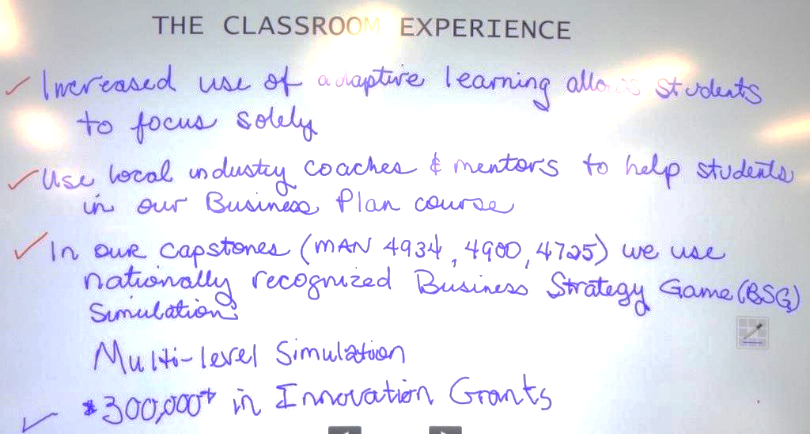 THE CLASSROOM EXPERIENCE
✓ Increased use of adaptive learning allows students
to focus solely
✓ Use local industry coaches & mentors to help students
in our Business Plan course
✓ In our capstones (MAN 4934, 4900, 4725) we use
nationally recognized Business Strategy Game (BSG)
Simulations
Multi-level Simulation
✓ $300,000+ in Innovation Grants